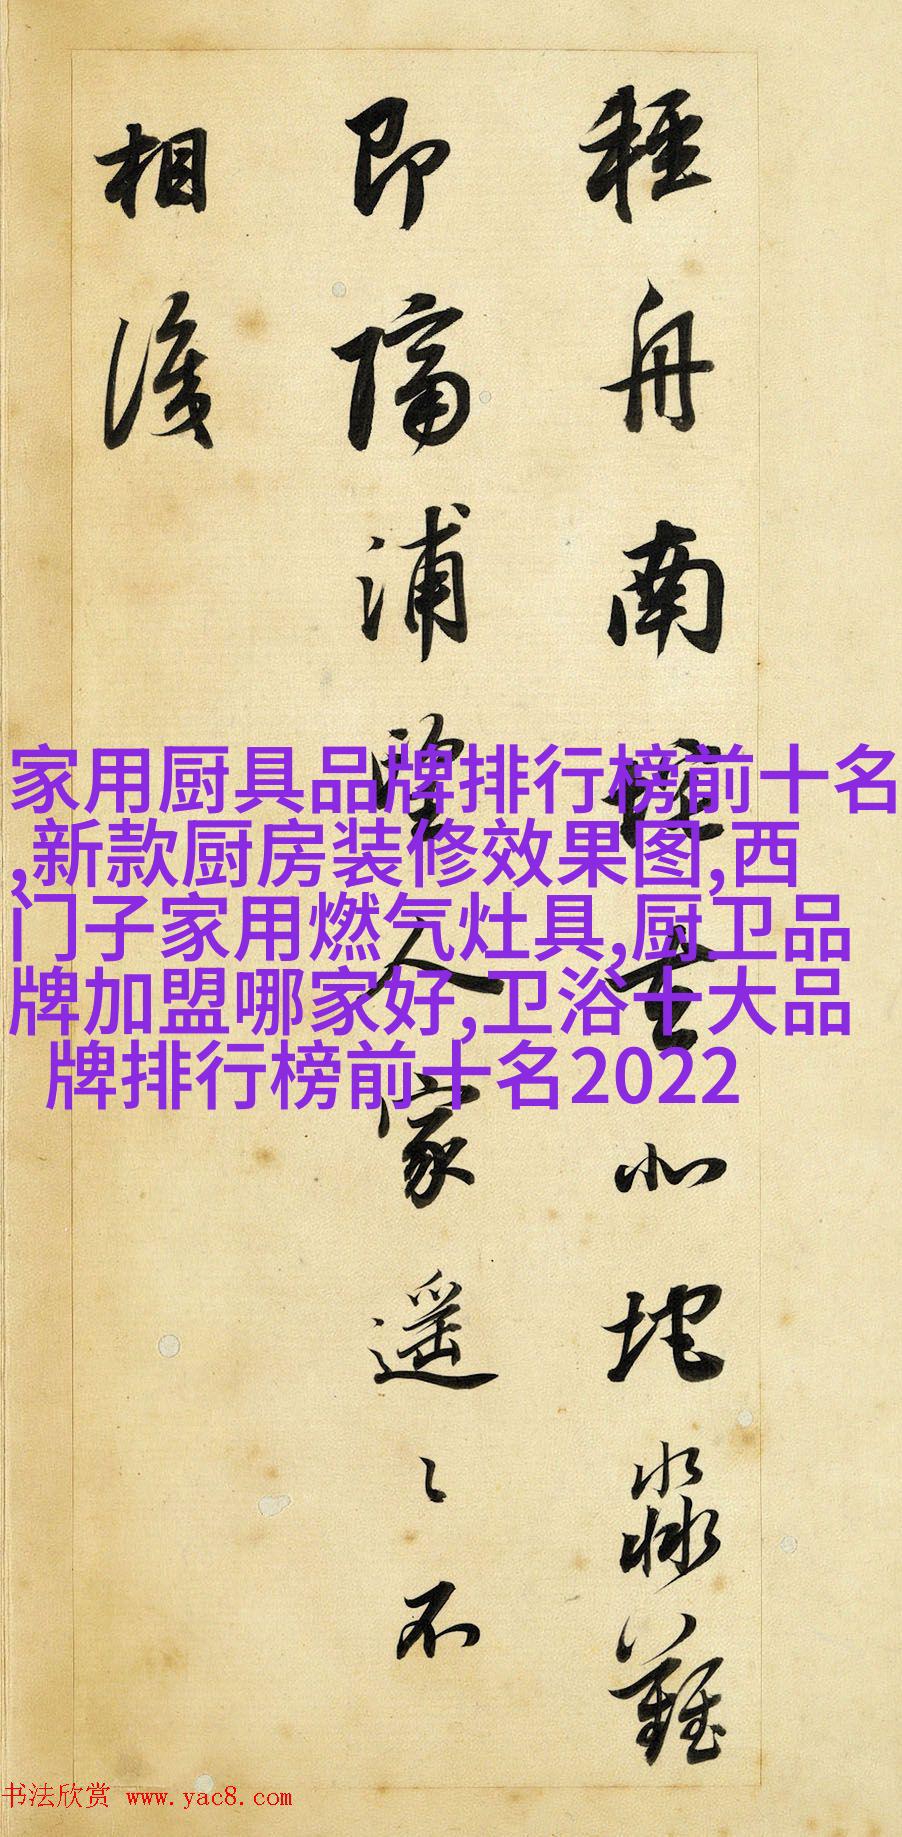 輕舟南垞去北垞淼難
即隔浦望人家遙〻不
相識
家用厨具品牌排行榜前十名
,新款厨房装修效果图,西
门子家用燃气灶具,厨卫品
牌加盟哪家好,卫浴十大品
牌排行榜前十名2022
书法欣赏 www.yac8.com